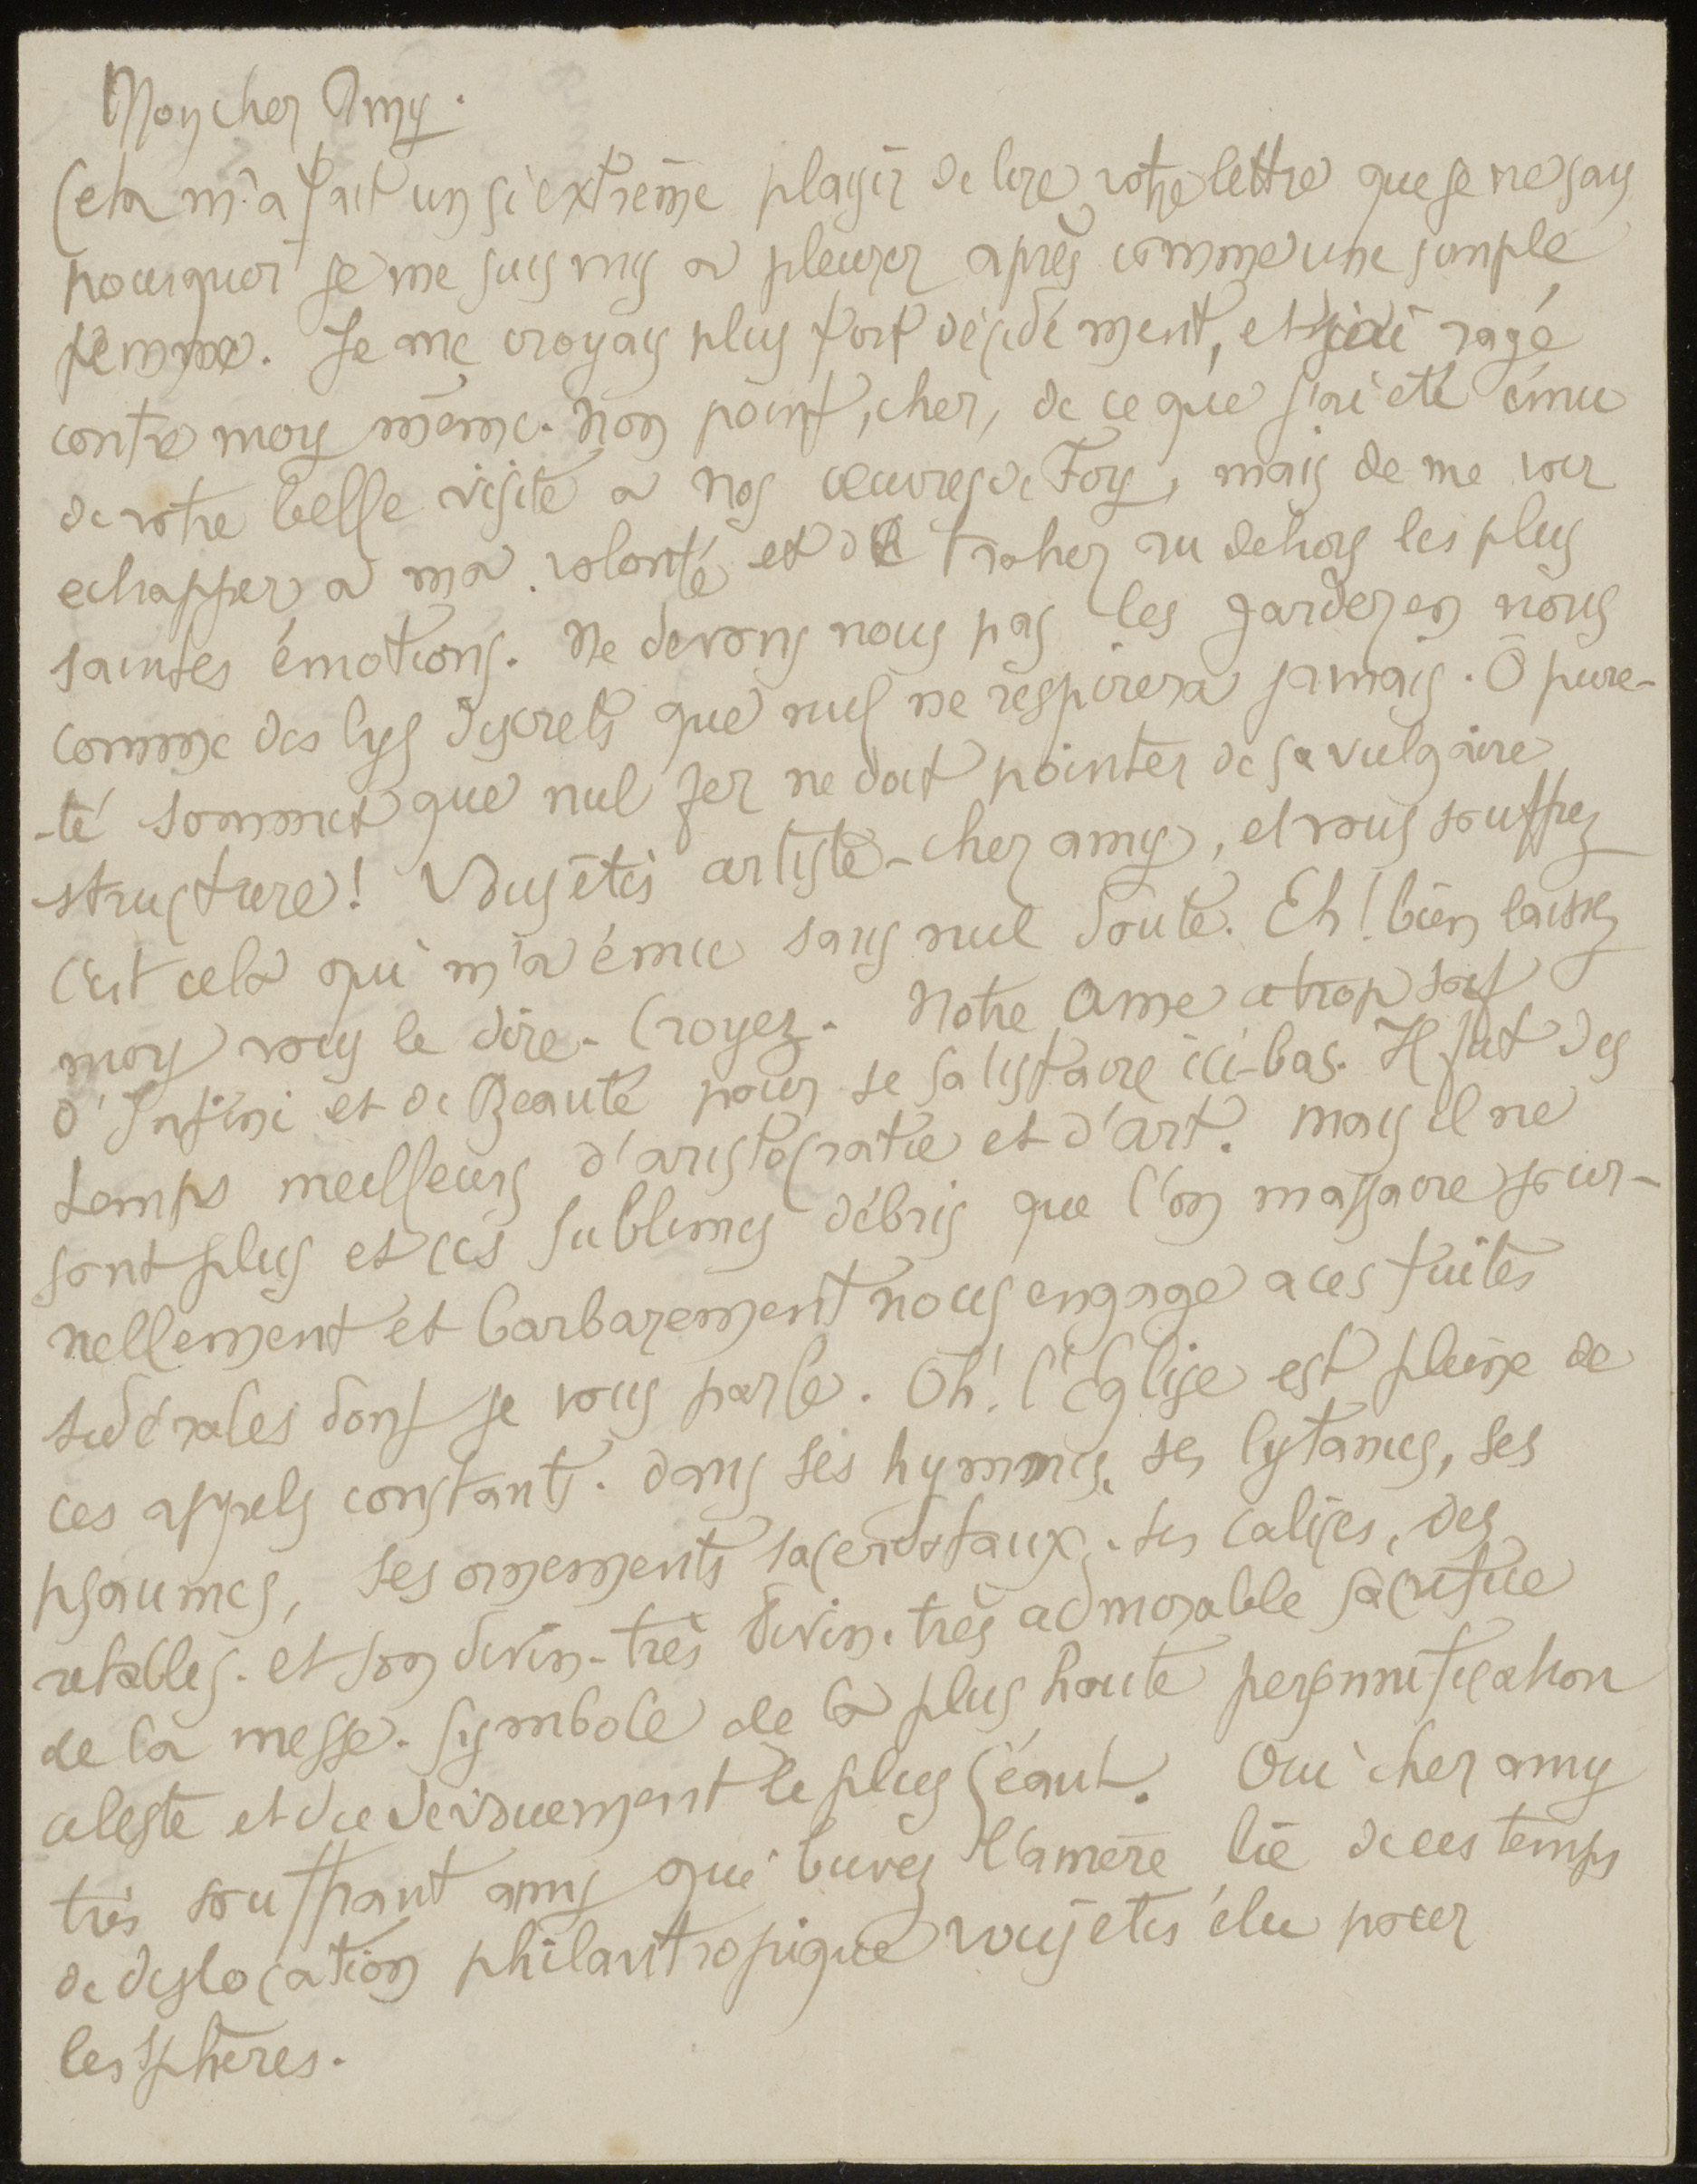 Mon cher Amy.
Cela m'a fait un si extrême plaisir de lire votre lettre que je ne says
pourquoi je me suis mis a pleurer après comme une simple
femme. Je me croyais plus fort décidément, et j'ai ragé
contre moy même. Non point, cher, de ce que j'ai été ému
de votre belle visite a nos œuvres de Foy, mais de me voir
echapper a ma volonté et de trahir au dehors les plus
saintes émotions. Ne devons nous pas les garder en nous
comme des lys discrets que nul ne respirera jamais. Ô pure-
-té sommet que nul fer ne doit pointer de sa vulgaire
structure! Vous êtes artiste - cher amy, et vous souffrez
C'est cela qui m'a ému sans nul doute. Eh! bien laissez
moy vous le dire. Croyez. Notre Ame a trop soif
d'Infini et de Beauté pour se satisfaire ici-bas. Il fut des
temps meilleurs d'aristocratie et d'art. mais il ne
sont plus et ces sublimes débris que l'on massacre jour-
nellement et barbarement nous engage a ces fuites
sidérales dont je vous parle. Oh! l'Eglise est pleine de
ces appels constants. dans ses hymnes, ses lytanies, ses
psaumes, ses ornements sacerdotaux. ses calices, des
retables. et son divin - très divin. très admorable sacrifice
de la messe. symbole de la plus haute personnification
celeste et du devouement le plus séant. Oui cher amy
très souffrant amy qui buvez l'amère lie de ces temps
de dislocation philantropique vous êtes élu pour
les sphères.